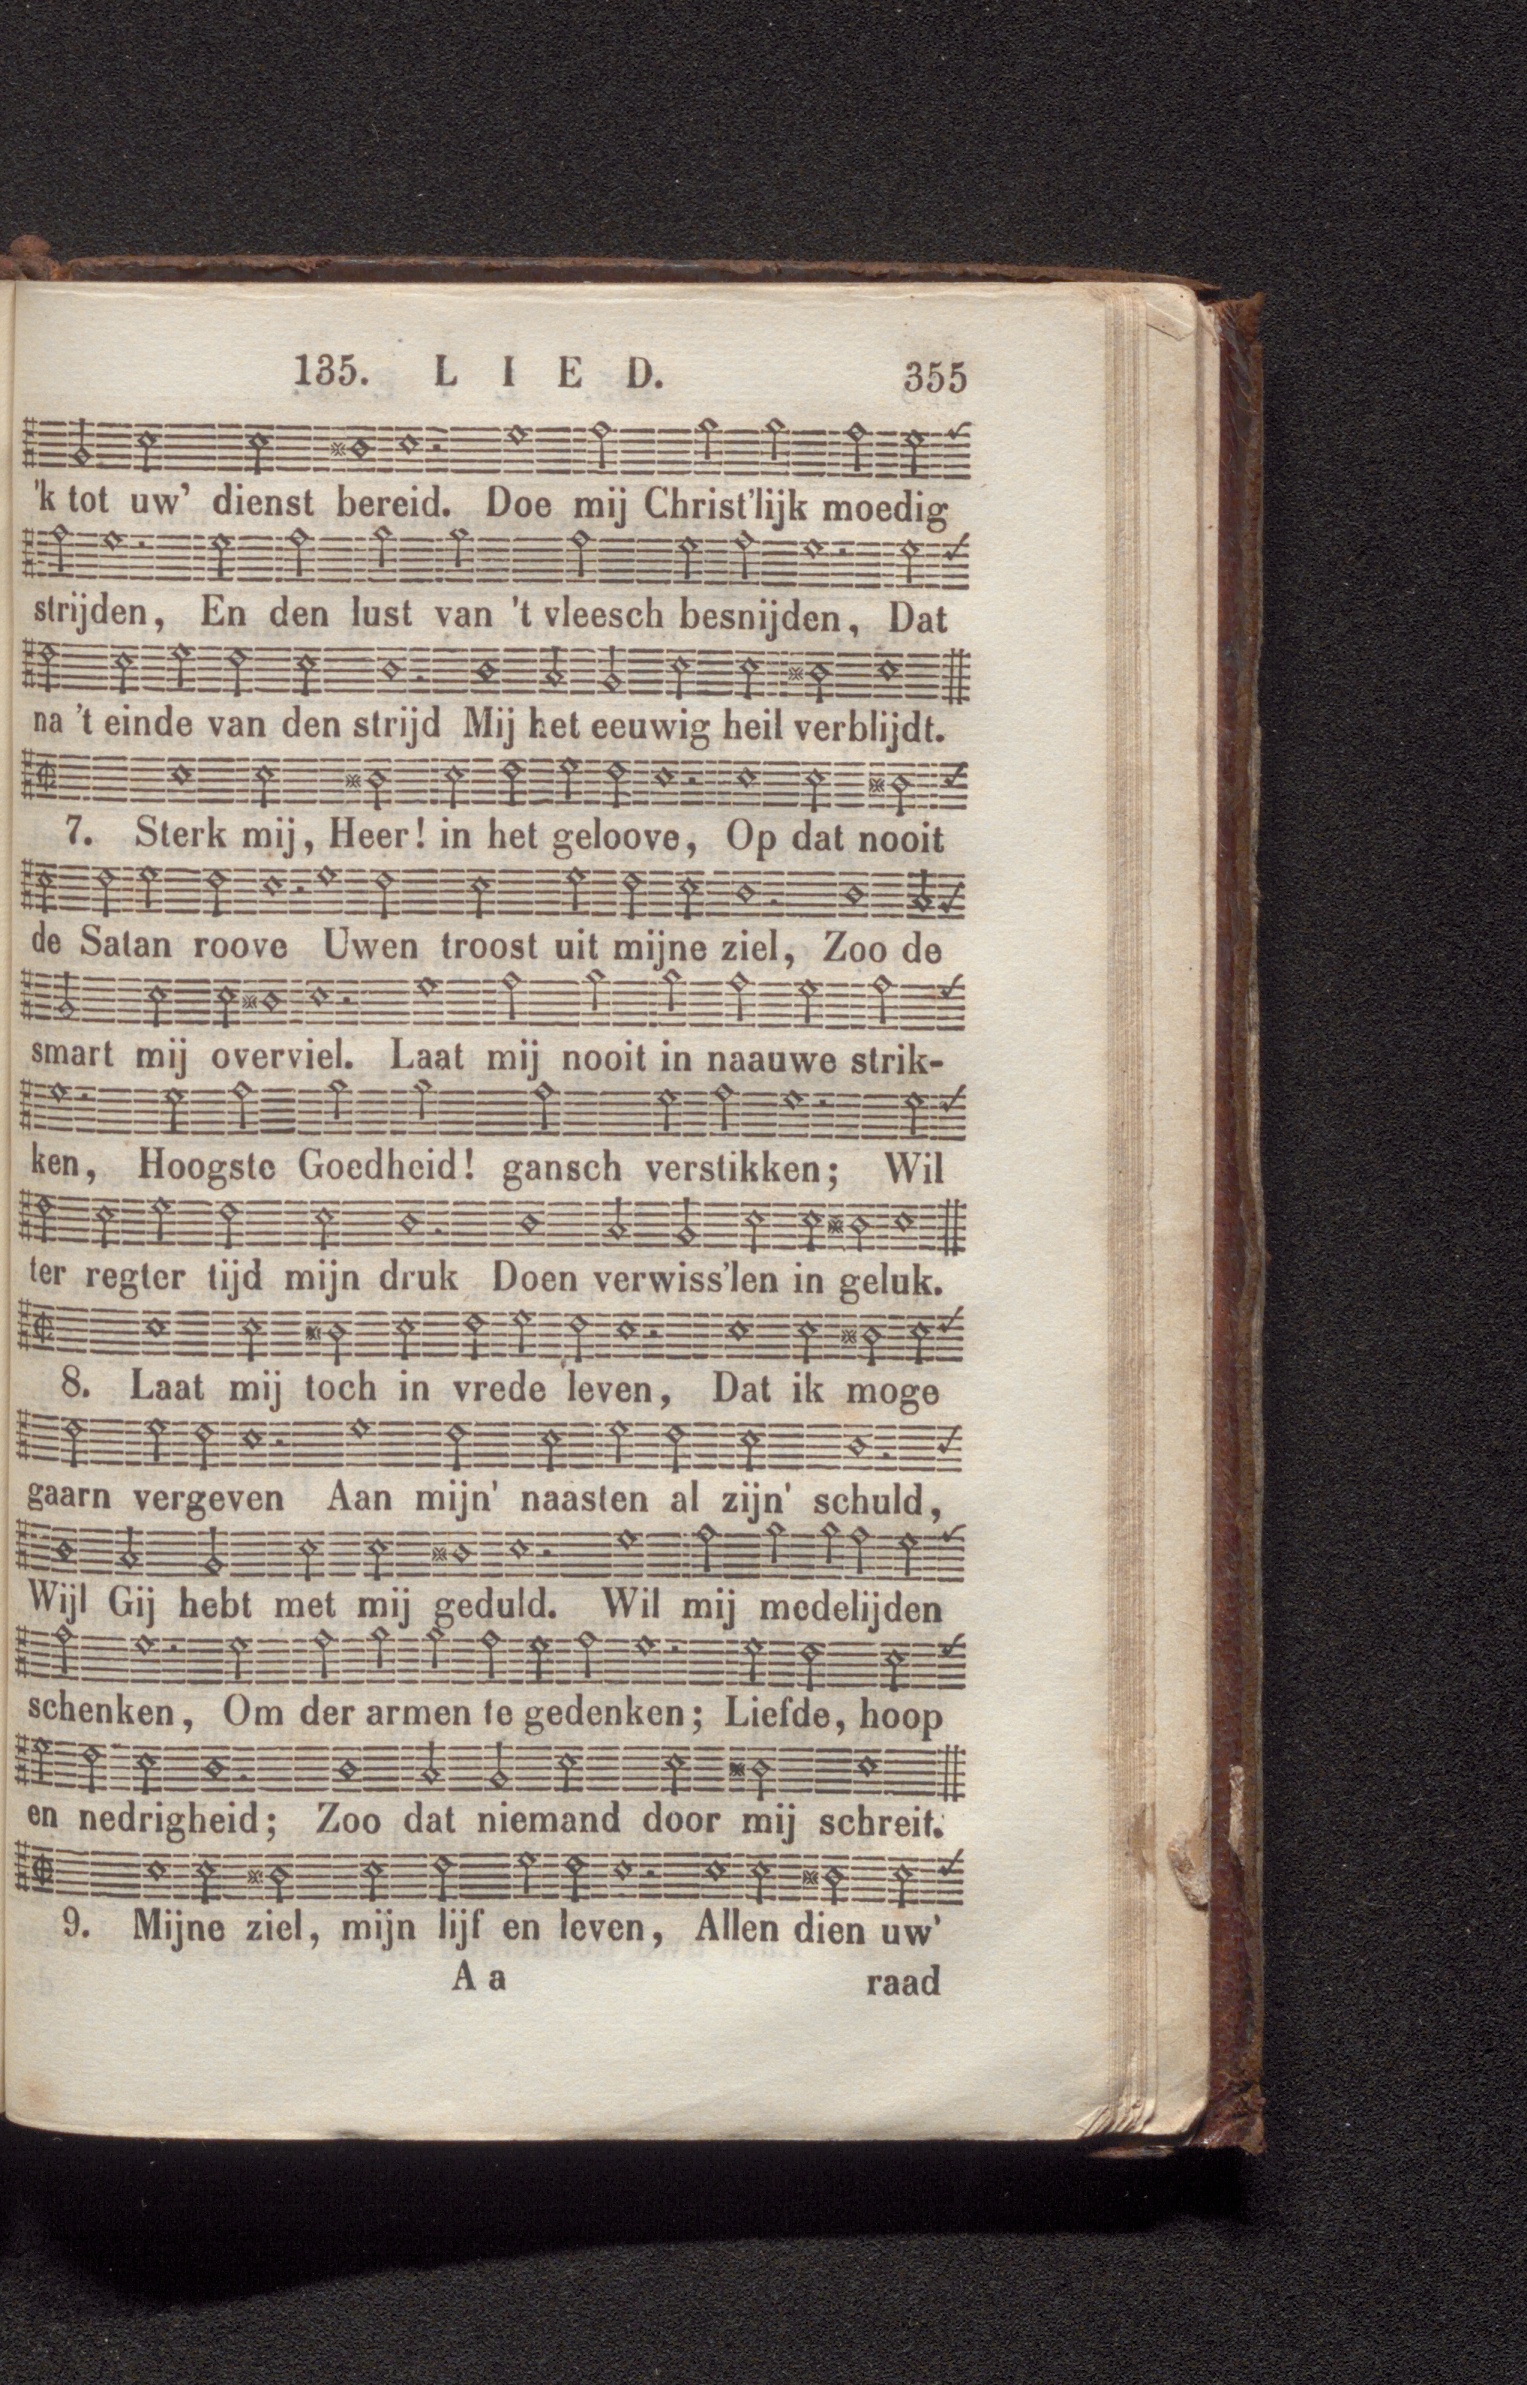 135. L I E D. 355
'k tot uw' dienst bereid. Doe mij Christ'lijk moedig
strijden, En den lust van 't vleesch besnijden, Dat
na 't einde van den strijd Mij het eeuwig heil verblijdt.
7. Sterk mij, Heer! in het geloove, Op dat nooit
de Satan roove Uwen troost uit mijne ziel, Zoo de
smart mij overviel. Laat mij nooit in naauwe strik-
ken, Hoogste Goedheid! gansch verstikken; Wil
ter regter tijd mijn druk Doen verwiss'len in geluk.
8. Laat mij toch in vrede leven, Dat ik moge
gaarn vergeven Aan mijn' naasten al zijn' schuld,
Wijl Gij hebt met mij geduld. Wil mij medelijden
schenken, Om der armen te gedenken; Liefde, hoop
en nedrigheid; Zoo dat niemand door mij schreit.
9. Mijne ziel, mijn lijf en leven, Allen dien uw'
A a raad